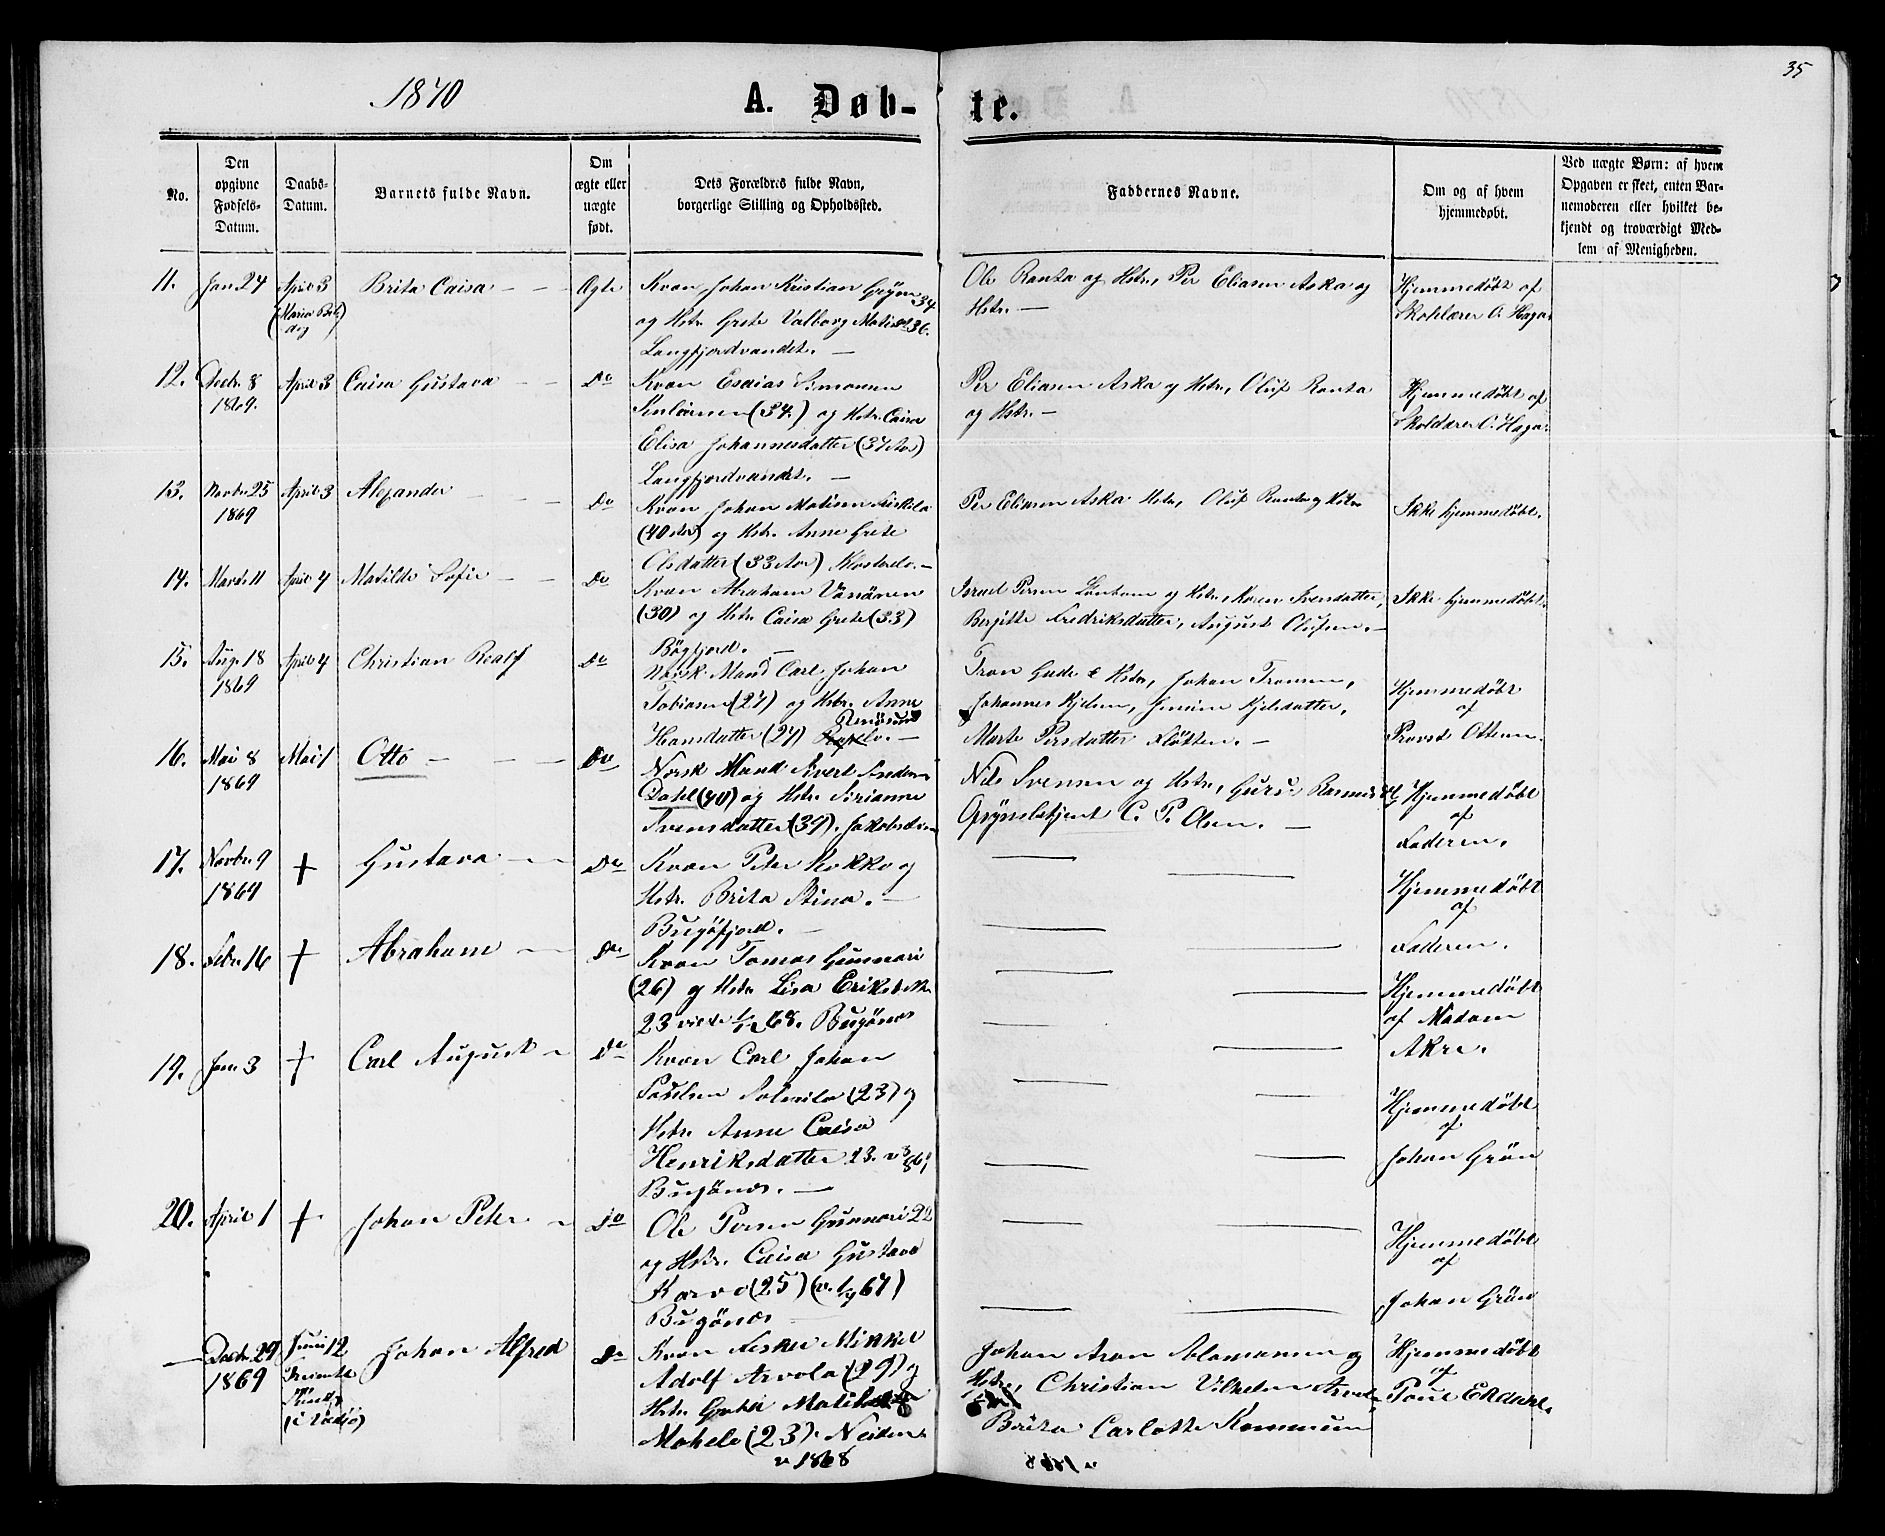 35
1870
A. Døb-
te.
No.
Den
opgivne
Fødsels-
Datum.
Daabs-
Datum.
Barnets fulde Navn.
Om
ægte eller
uægte
født.
Dets Forældres fulde Navn,
borgerlige Stilling og Opholdssted.
Faddernes Navne.
Om og af hvem
hjemmedøbt.
Ved uægte Børn: af hvem
Opgaven er skeet, enten Bar-
nemoderen eller hvilket be-
kjendt og troværdigt Med-
lem af Menigheden.
11. Jan 24 April 3 Brita Caisa — — Ægte
(Maria Beb.
dag)
Kvæn Johan Kristian Grön 34
og Hstr. Grete Valborg 36.
Langfjordvandet. —
Ole Ranta og Hstr., Per Eliasen Aska og
Hstr. —
Hjemmedøbt af
Skolelærer O. Haga.
12. Decbr. 8 April 3 Caisa Gustava — — Do
1869.
Kvæn Esaias Simonsen
(34.) og Hstr. Caisa
Elisa Johannesdatter (37 Aar)
Langfjordvandet. —
Per Eliasen Aska og Hstr., Oluf Ranta
og Hstr. —
Hjemmedøbt af
Skolelærer O. Haga.
13. Novbr. 25 April 3 Alexander — — — Do
1869
Kvæn Johan Matisen
(40 Aar) og Hstr. Anne Grete
Olsdatter (33 Aar) Klosterelv. —
Per Eliasen Aska Hstr., Oluf Ranta og Hstr.
Ikke hjemmedøbt.
14. Marts 11 April 4 Matilde Sofie — — Do
Kvæn Abraham Vänänen
(30) og Hstr. Caisa Grete (33)
Bögfjord. —
Israel Persen og Hstr., Karen Svensdatter,
Berjitte Fredriksdatter, August Olufsen. —
Ikke hjemmedøbt.
15. Aug. 18 April 4 Christian Realf Do
1869
Norsk Mand Carl Johan
Tobiasen (27) og Hstr. Anne
Hansdatter (24) —
Tron Gade & Hstr., Johan Tronsen,
Johannes Kjelsen, Kjelsdatter,
Marte Persdatter Fløtten. —
Hjemmedøbt
af
Provst Ottesen.
16. Mai 8 Mai 1 Otto — — — Do
1869
Norsk Mand Sivert
Dahl (40) og Hstr. Sirianne
Svensdatter (39). Jakobselven
Nils Svensen og Hstr.,
Opsynsbetjent C. P. Olsen. —
Hjemmedøbt
af
Faderen.
17. Novbr. 9 + Gustava — — Do
1869
Kvæn Peter Kokko og
Hstr. Brita Stina. —
Bugöfjord. —
Hjemmedøbt
af
Faderen.
18. Febr. 16 + Abraham — — Do
Kvæn Tomas Gunnari
(26) og Hstr. Lisa Eriksdatter
23 viede 68. Bugönæs
Hjemmedøbt
af Madam
Akre.
19. Jan. 3 + Carl August — Do
Kvæn Carl Johan
(23) og
Hstr. Anne Caisa
Henriksdatter 23.
Bugönæs. —
Hjemmedøbt
af
Johan Grön
20. April 1 + Johan Peter — Do
Ole Persen Gunnari 22
og Hstr. Caisa Gustava
Karvo (25) (v. 67)
Bugönæs —
Hjemmedøbt
af
Johan Grön
— Decbr. 29 Juni 12 Johan Alfred Do
1869
(i Vadsø)
Kvæn Fisker Mikkel
Adolf Arvola (29) og
Hstr. Greta Matilde
(23). Neiden.
v 1868
Johan Aron Salomonsen og
Hstr., Christian Vilhelm
Brita Carlotte
Hjemmedøbt
af
Poul Ekdahl.